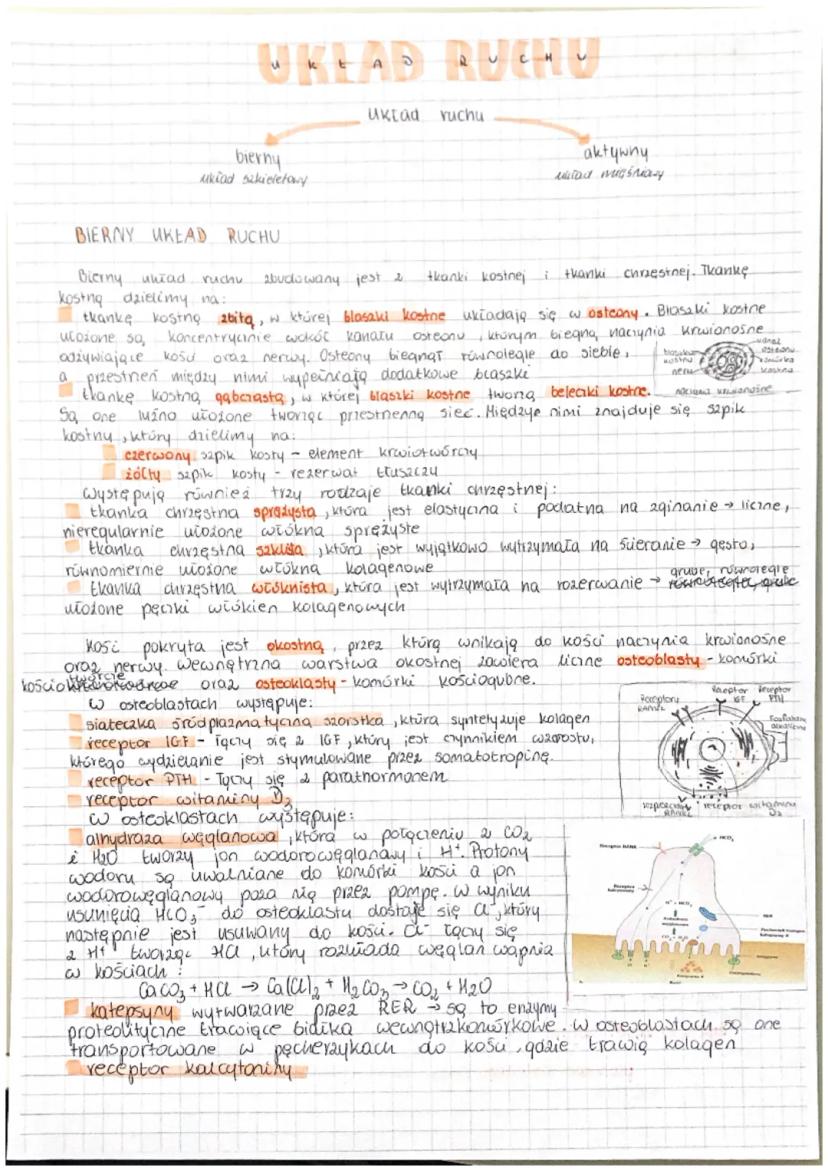 UKŁAD RUCHU
układ ruchu
bierny
układ szkieletowy
aktywny
układ mięśniowy
BIERNY UKŁAD RUCHU
Bierny układ ruchu zbudowany jest z tkanki kostnej i tkanki chrzęstnej. Tkankę
kostną dzielimy na:
tkankę kostną zbitą, w której blaszki kostne układają się w osteony. Blaszki kostne
ułożone są koncentrycznie wokół kanału osteonu, którym biegną naczynia krwionośne
odżywiające kość oraz nerwy. Osteony biegną równolegle do siebie,
a przestrzeń między nimi wypełniają dodatkowe blaszki
blaszka kostna
nerw
kanał osteonu
komórka kostna
naczynia krwionośne
tkankę kostną gąbczastą, w której blaszki kostne tworzą beleczki kostne.
Są one luźno ułożone tworząc przestrzenną sieć. Między nimi znajduje się szpik
kostny, który dzielimy na:
czerwony szpik kosty - element krwiotwórczy
żółty szpik kosty - rezerwat tłuszczu
Występują również trzy rodzaje tkanki chrzęstnej:
tkanka chrzęstna sprężysta, która jest elastyczna i podatna na zginanie → liczne,
nieregularnie ułożone włókna sprężyste
tkanka chrzęstna szklista, która jest wyjątkowo wytrzymała na ścieranie → gęsto,
równomiernie ułożone włókna kolagenowe
tkanka chrzęstna włóknista, która jest wytrzymała na rozerwanie → grube, równoległe
ułożone pęczki włókien kolagenowych
Kość pokryta jest okostną, przez którą wnikają do kości naczynia krwionośne
oraz nerwy. Wewnętrzna warstwa okostnej zawiera liczne osteoblasty - komórki
kościotwórcze oraz osteoklasty - komórki kościogubne.
W osteoblastach występuje:
siateczka śródplazmatyczna szorstka, która syntetyzuje kolagen
receptor IGF - łączy się z IGF, który jest czynnikiem wzrostu,
którego wydzielanie jest stymulowane przez somatotropinę.
receptor PTH - łączy się z parathormonem
receptor witaminy D3
Receptor IGF
Receptor PTH
receptor witaminy D3
W osteoklastach występuje:
anhydraza węglanowa, która w połączeniu z CO2
i H2O tworzy jon wodorowęglanowy i H+. Protony
wodoru są uwalniane do komórki kości a jon
wodorowęglanowy poza nią przez pompę. W wyniku
usunięcia HCO3- do osteoklastu dostaje się Cl-, który
następnie jest usuwany do kości. Cl- łączy się
z H+ tworząc HCl, który rozkłada węglan wapnia
w kościach:
CaCO3 + HCl → Ca(Cl)2 + H2CO3 → CO2 + H2O
katepsyny wytwarzane przez RER → są to enzymy
proteolityczne trawiące białka wewnątrzkomórkowe. W osteoblastach są one
transportowane w pęcherzykach do kości, gdzie trawią kolagen
receptor kalcytoniny
HCO3
RER